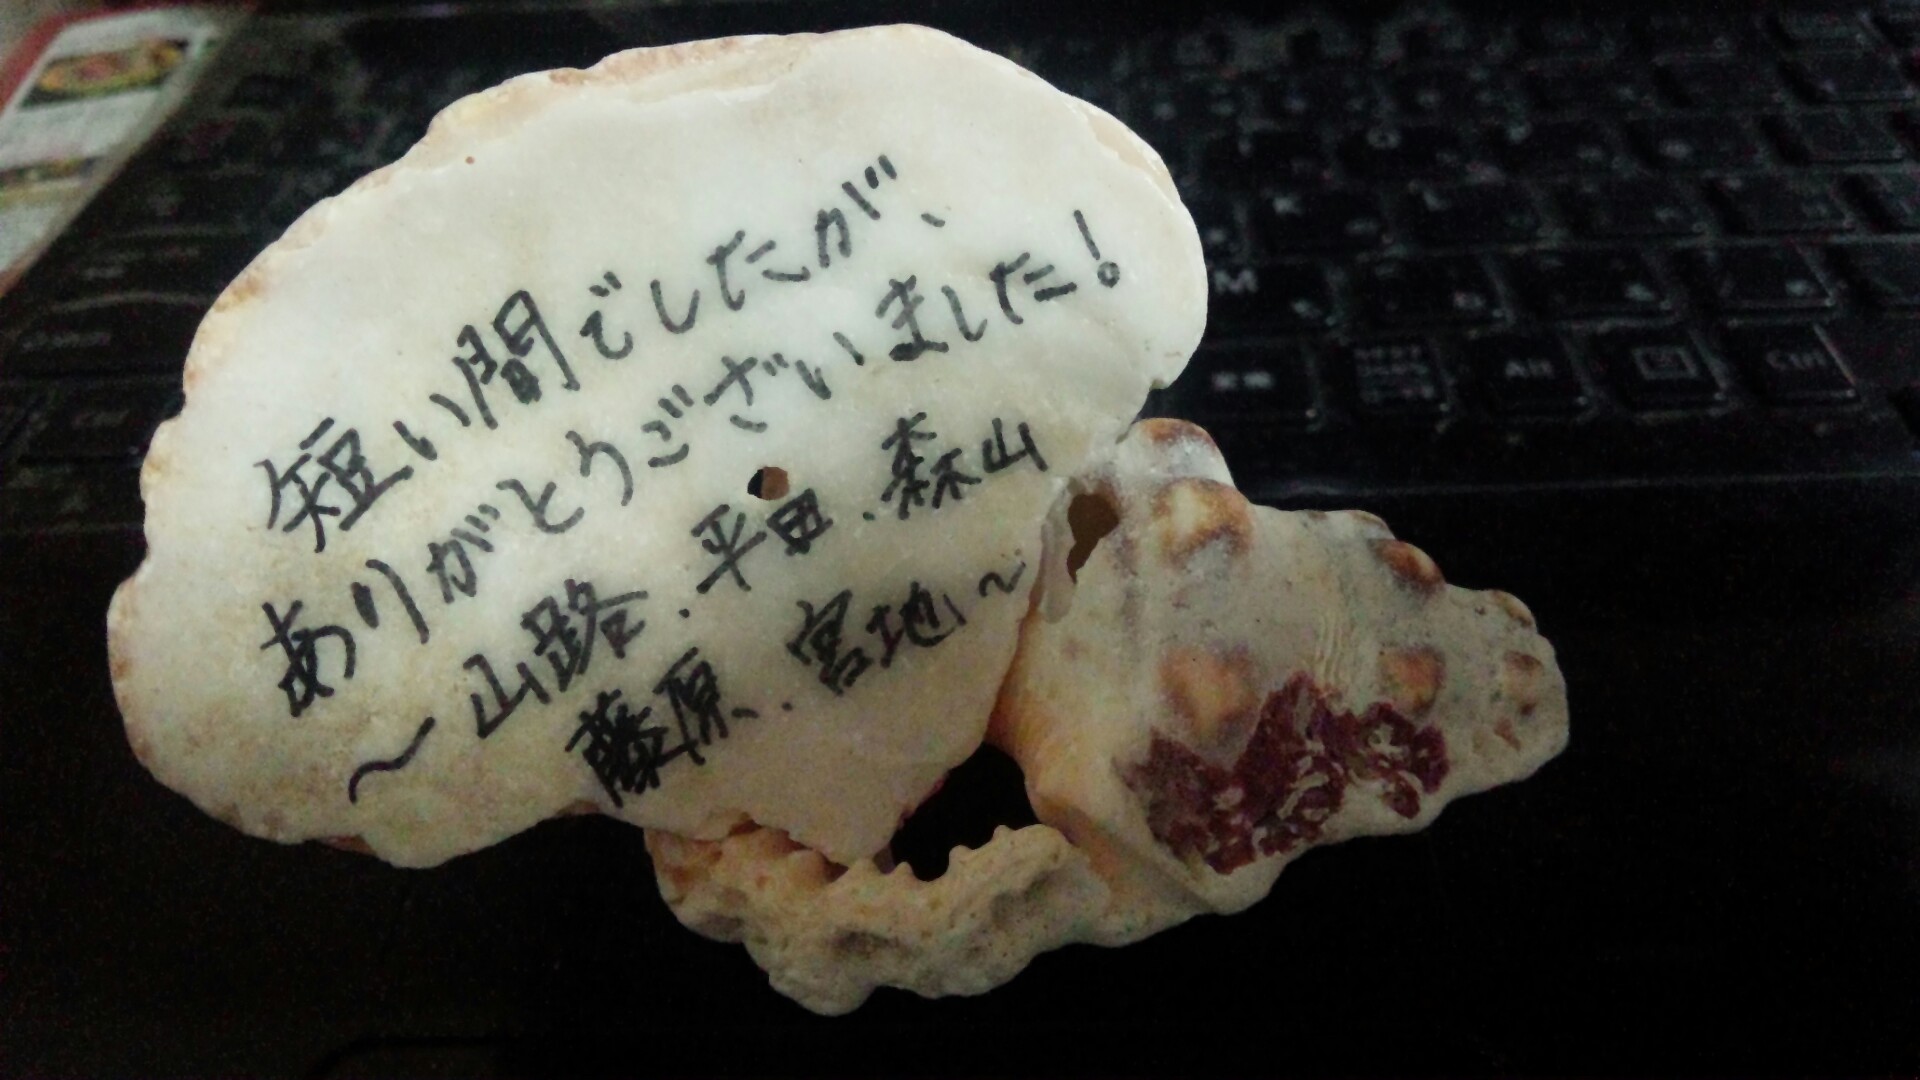 短い間でしたが、
ありがとうございました!
～山路.平田.森山
藤原.宮地～
M
Alt
Ctrl